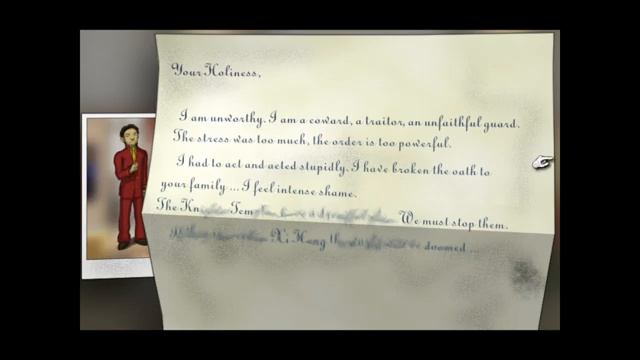 Your Holiness,
I am unworthy. I am a coward, a traitor, an unfaithful guard.
The stress was too much, the order is too powerful.
I had to act and acted stupidly. I have broken the oath to
your family ... I feel intense shame.
The We must stop them.
Xi Hang doomed ...